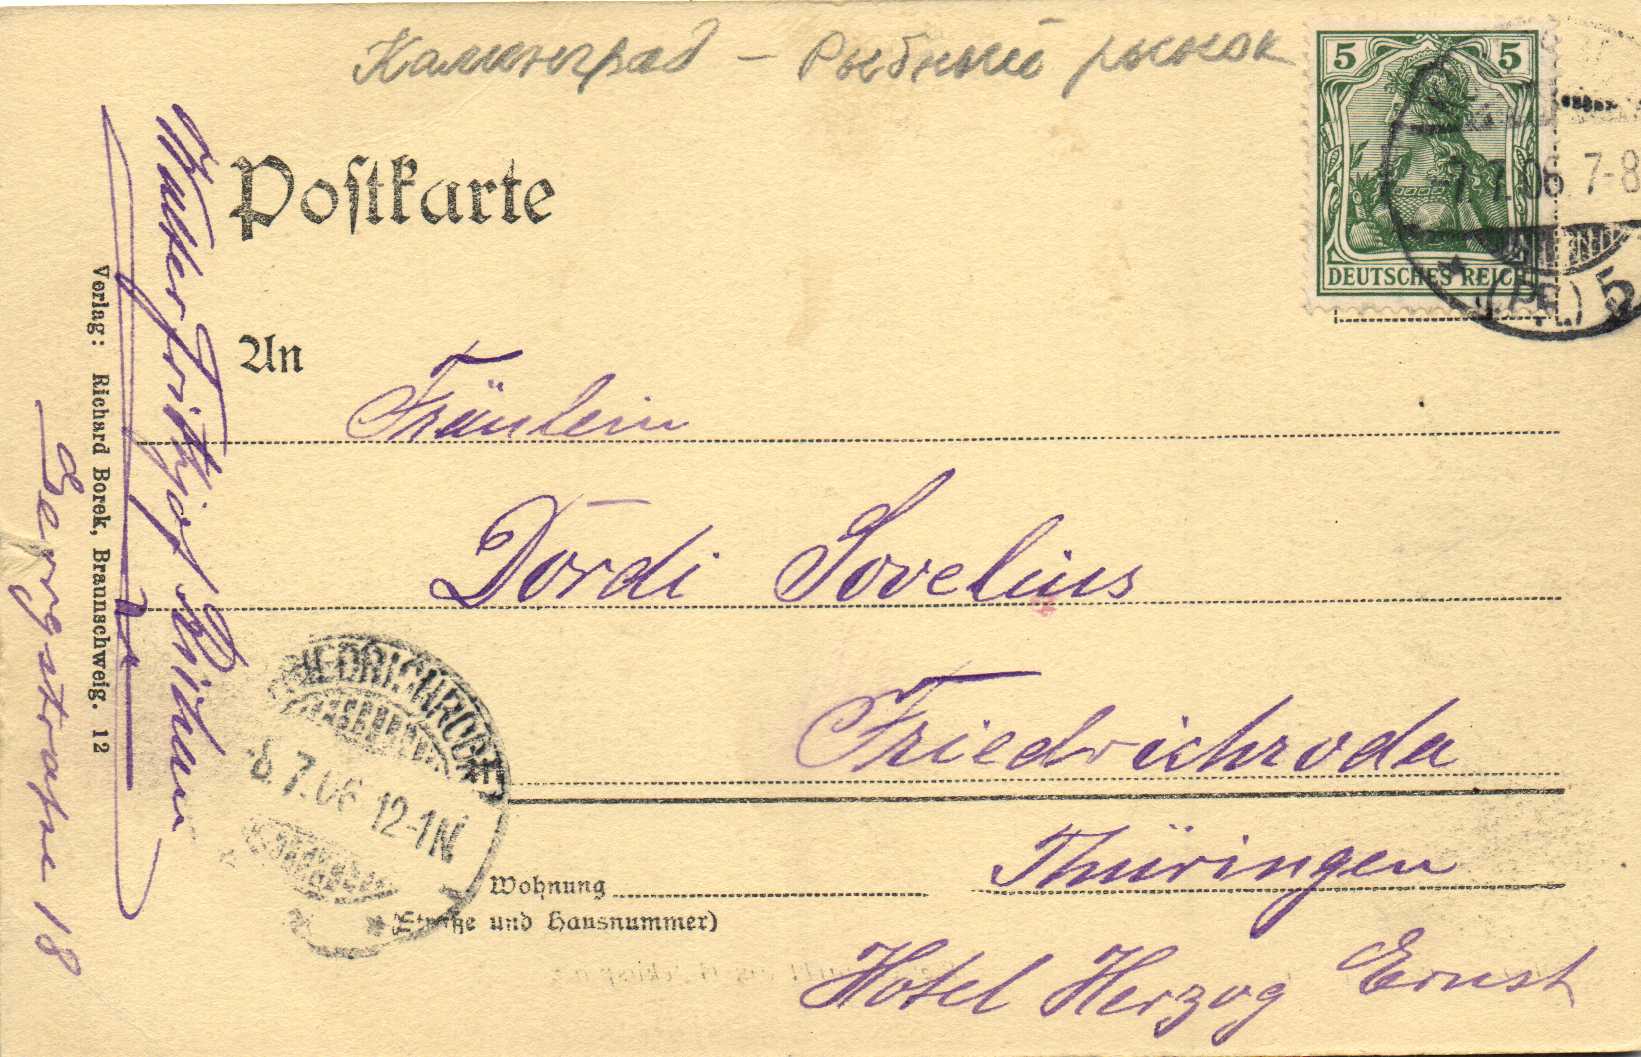 Калининград – Рыбный рынок
5 5
DEUTSCHES REICH
7.7.06 7-8
(PR.) 5
Postkarte
An
Fräulein
Dordi Sovelius
Friedrichroda
Thüringen
Hotel Herzog Ernst
Wohnung
(Straße und Hausnummer)
FRIEDRICHRODA
8.7.06 12-1N
Verlag: Richard Borek, Braunschweig. 12
Walter Fritzjof
Bergstraße 18